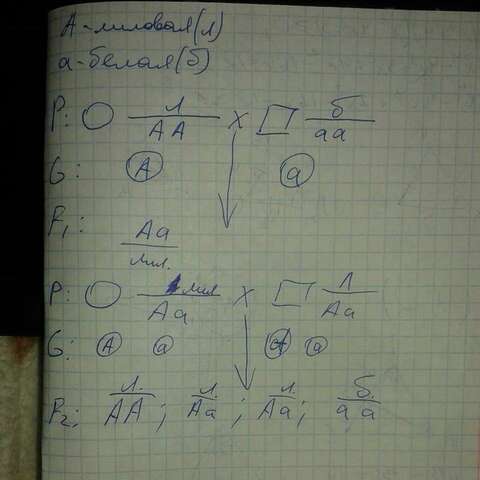 А - лиловая (л)
а - белая (б)
P: ○ л/AA x □ б/aa
G: A a
F₁: Aa/лил.
P: ○ лил/Aa x □ л/Aa
G: A a A a
F₂: л./AA; л./Aa; л./Aa; б./aa